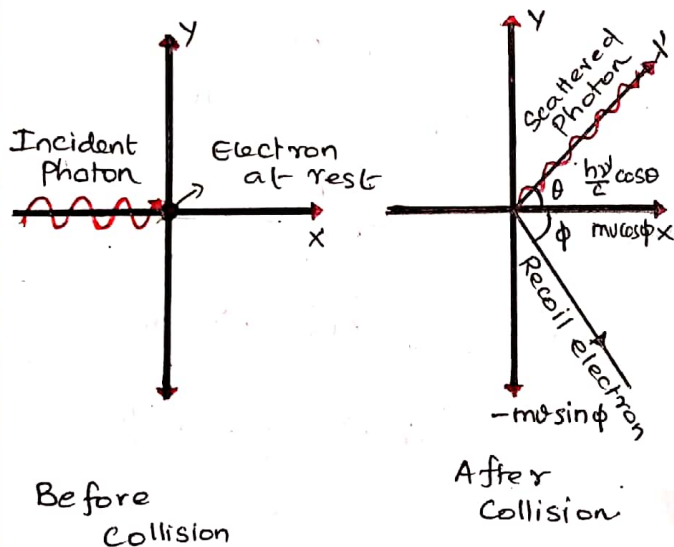 Y
Incident
Photon
Electron
at rest
X
Before
Collision
Y
Scattered
Photon
γ'
θ
hν'/c cosθ
ϕ
mv cosϕ X
Recoil electron
-mv sinϕ
After
Collision